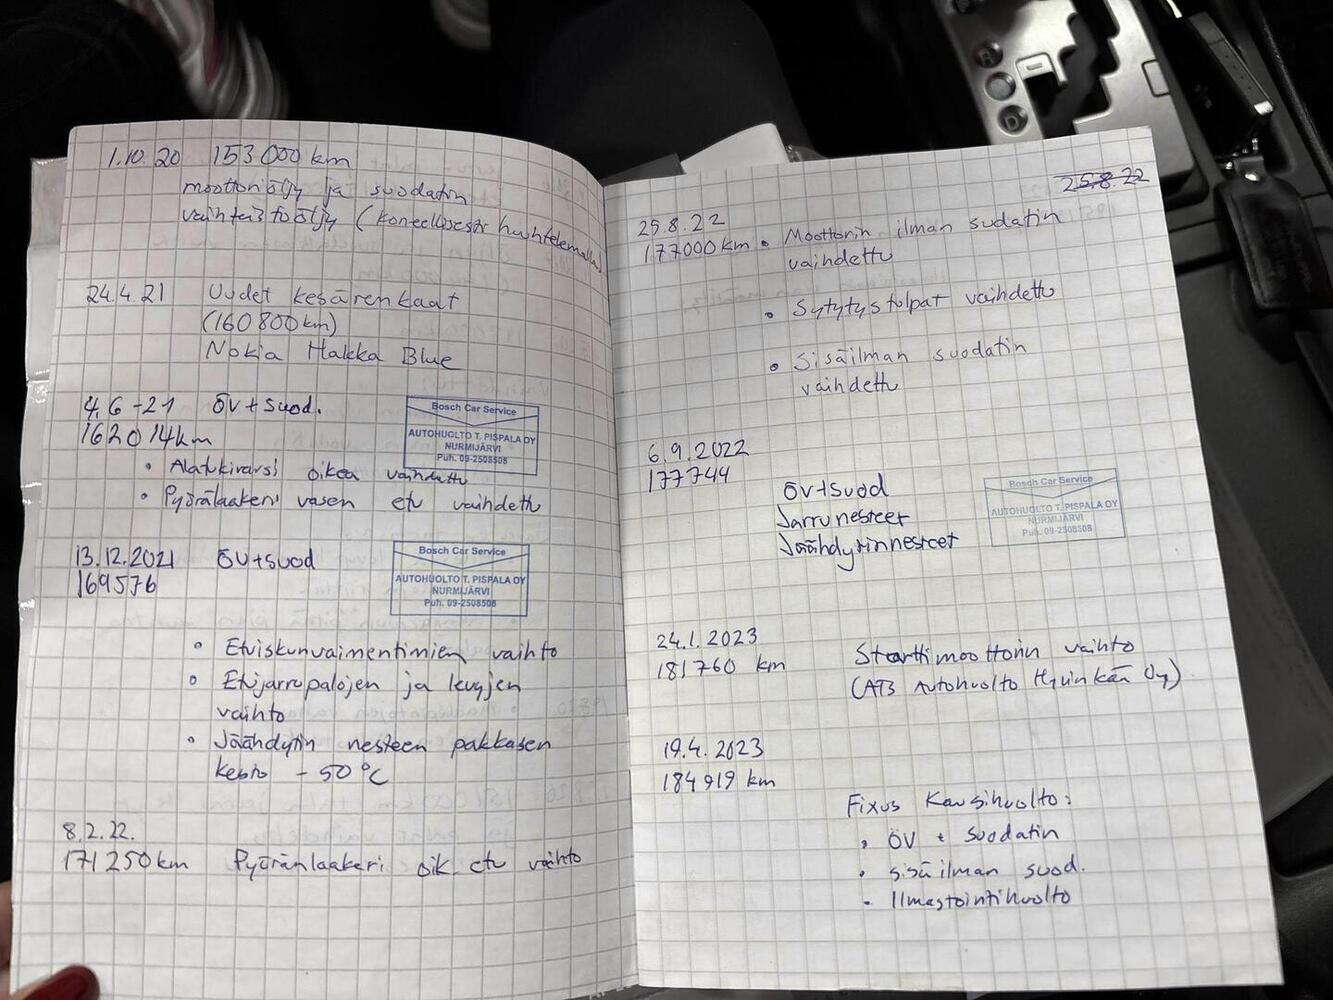 1.10.20 153000 km
moottoriöljy ja suodatin
vaihteistoöljy (koneellisesti huuhtelemalla)
24.4.21 Uudet kesärenkaat
(160800km)
Nokia Hakka Blue
4.6-21 ÖV+suod.
162014km
• Alatukivarsi oikea vaihdettu
• Pyörälaakeri vasen etu vaihdettu
Bosch Car Service
AUTOHUOLTO T. PISPALA OY
NURMIJÄRVI
Puh. 09-2508508
13.12.2021 ÖV+suod
169576
Bosch Car Service
AUTOHUOLTO T. PISPALA OY
NURMIJÄRVI
Puh. 09-2508508
• Etuiskunvaimentimien vaihto
• Etujarrupalojen ja levyjen
vaihto
• Jäähdytin nesteen pakkasen
kesto -50°C
8.2.22.
171250km Pyöränlaakeri oik. etu vaihto
25.8.22
25.8.22
177000km • Moottorin ilman sudatin
vaihdettu
• Sytytystulpat vaihdettu
• Sisäilman suodatin
vaihdettu
6.9.2022
177744
ÖV+suod
Jarrunesteet
Jäähdytinnesteet
Bosch Car Service
AUTOHUOLTO T. PISPALA OY
NURMIJÄRVI
Puh. 09-2508508
24.1.2023
181760 km
Starttimoottorin vaihto
(ATS Autohuolto Hyvinkää Oy)
19.4.2023
184919 km
Fixus Kausihuolto:
• ÖV + suodatin
• sisäilman suod.
• Ilmastointihuolto
R
D